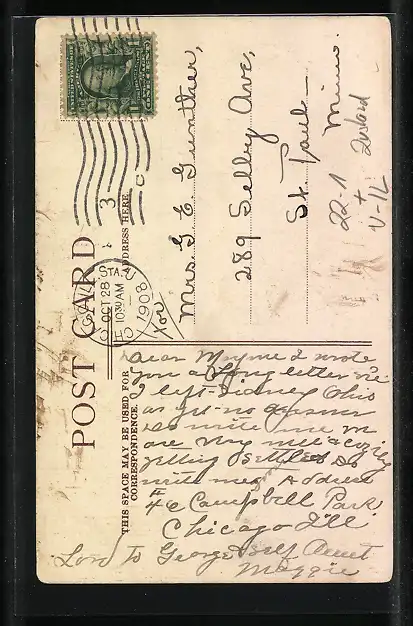 POST CARD
THIS SPACE MAY BE USED FOR
CORRESPONDENCE.
ADDRESS HERE.
STA.
OCT 28
10 30 AM
1908
3
C
Mrs. G E Gunther,
289 Selby Ave,
St. Paul
Minn.
22-1
+
V-1L
Dear Mayme I wrote
you a long letter
I left Sidney Ohio
as yet no answer
Do write me
are very
getting settled Do
write me Address
# 40 Campbell Park
Chicago Ill.
Love to George Self Aunt
Maggie